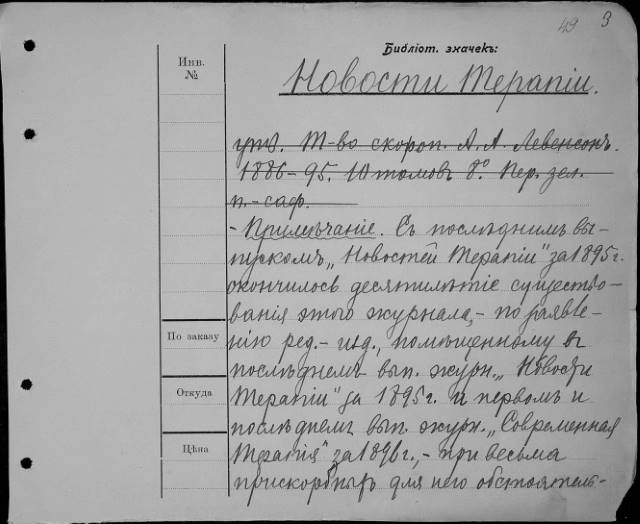 49 3
Библіот. значекъ:
Инв.
№
Новости Терапіи.
Т-во скороп. А. А. Левенсонъ.
1886-95. 10 томовъ 8º. Пер. зел.
п.-саф.
- Примѣчаніе. Съ послѣднимъ вы-
пускомъ „Новостей Терапіи" за 1895 г.
окончилось десятилѣтіе существо-
ванія этого журнала,- по заявле-
нію ред.- изд., помѣщенному въ
По заказу
послѣднемъ вып. журн. „Новости
Терапіи" за 1895 г. и первомъ и
Откуда
послѣднемъ вып. журн. „Современная
Терапія" за 1896 г.,- при весьма
Цѣна
прискорбныхъ для него обстоятель-